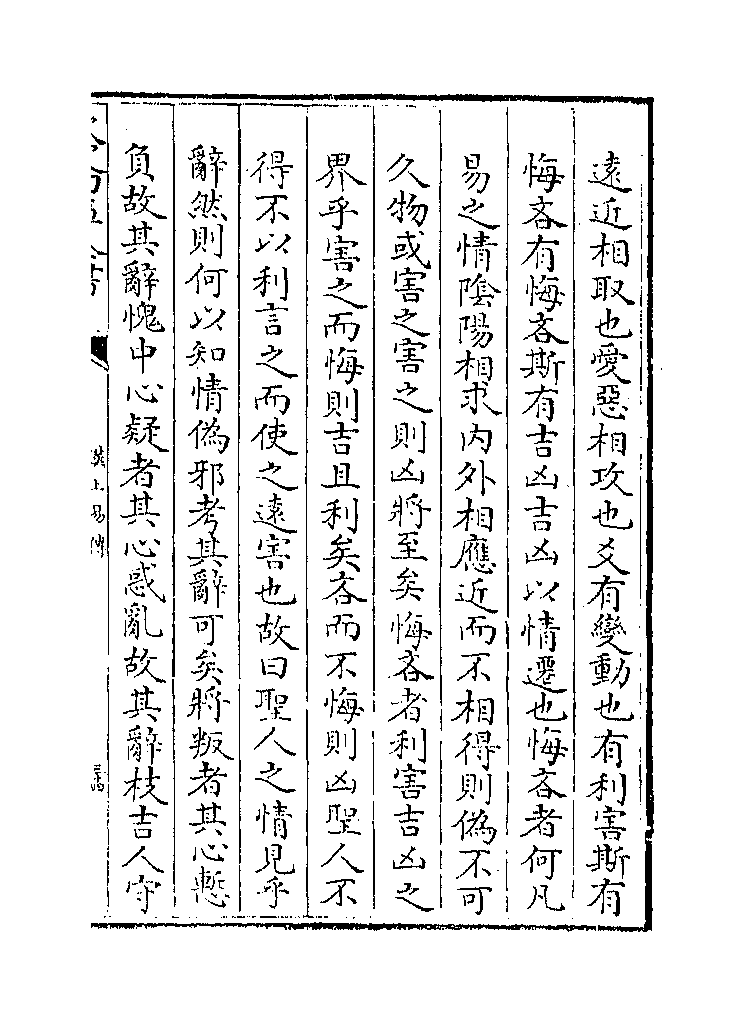 遠近相取也愛惡相攻也爻有變動也有利害斯有
悔吝有悔吝斯有吉凶吉凶以情遷也悔吝者何凡
易之情陰陽相求内外相應近而不相得則偽不可
久物或害之害之則凶將至矣悔吝者利害吉凶之
界乎害之而悔則吉且利矣吝而不悔則凶聖人不
得不以利言之而使之遠害也故曰聖人之情見乎
辭然則何以知情偽邪考其辭可矣將叛者其心慙
負故其辭愧中心疑者其心惑亂故其辭枝吉人守
漢上易傳